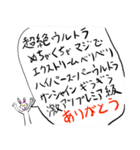 超絶ウルトラ
めちゃくちゃ マジで
エクストリームベリベリ
ハイパースーパーウルトラ
サンシャインぎらぎら
激アツプレミア級
ありがとう